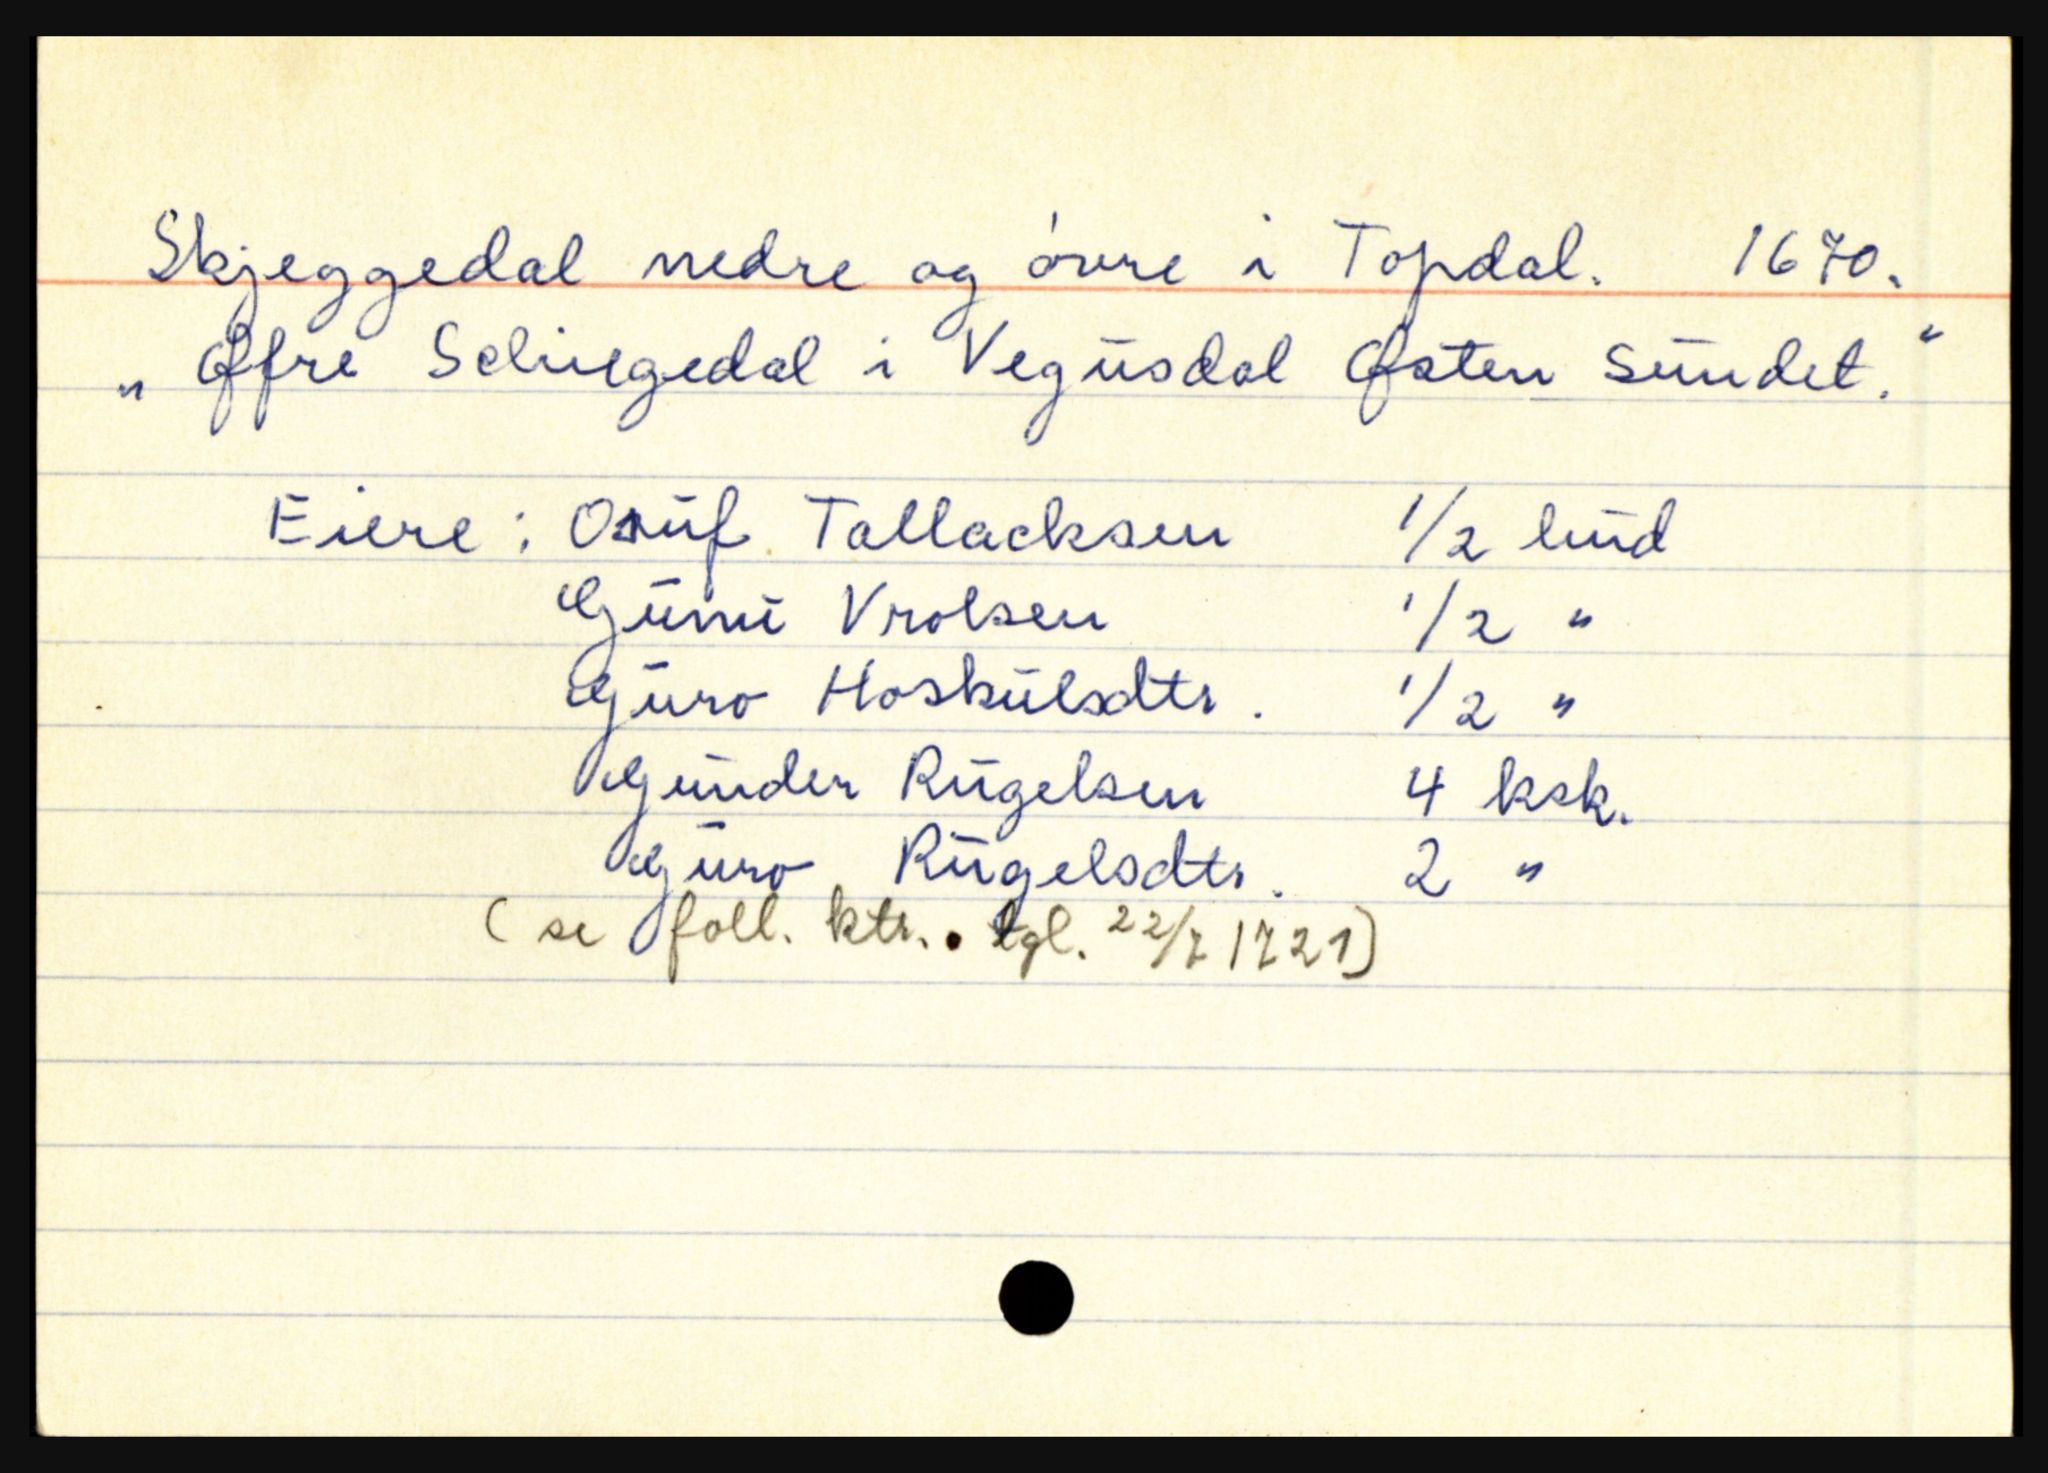 Skjeggedal nedre og øvre i Topdal. 1670.
„ Øffre Schiegedal i Vegusdal Østen Sundet."
Eiere: Osuf Tallacksen 1/2 hud
Guni Vrolsen 1/2 "
Guro Hoskulsdtr. 1/2 "
Gunder Rugelsen 4 ksk.
Guro Rugelsdtr. 2 "
(se foll. ktr. tgl. 22/7 1721)